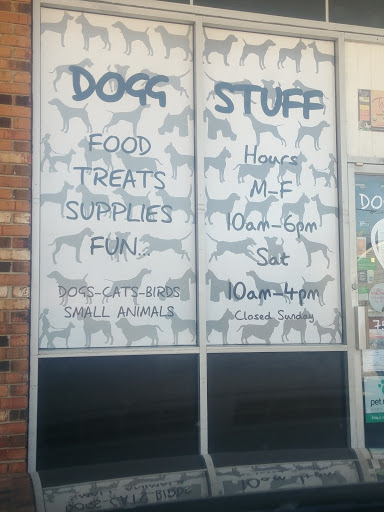 DOGG
FOOD
TREATS
SUPPLIES
FUN...
DOGS-CATS-BIRDS
SMALL ANIMALS
STUFF
Hours
M-F
10am-6pm
Sat
10am-4pm
Closed Sunday
DO
pet